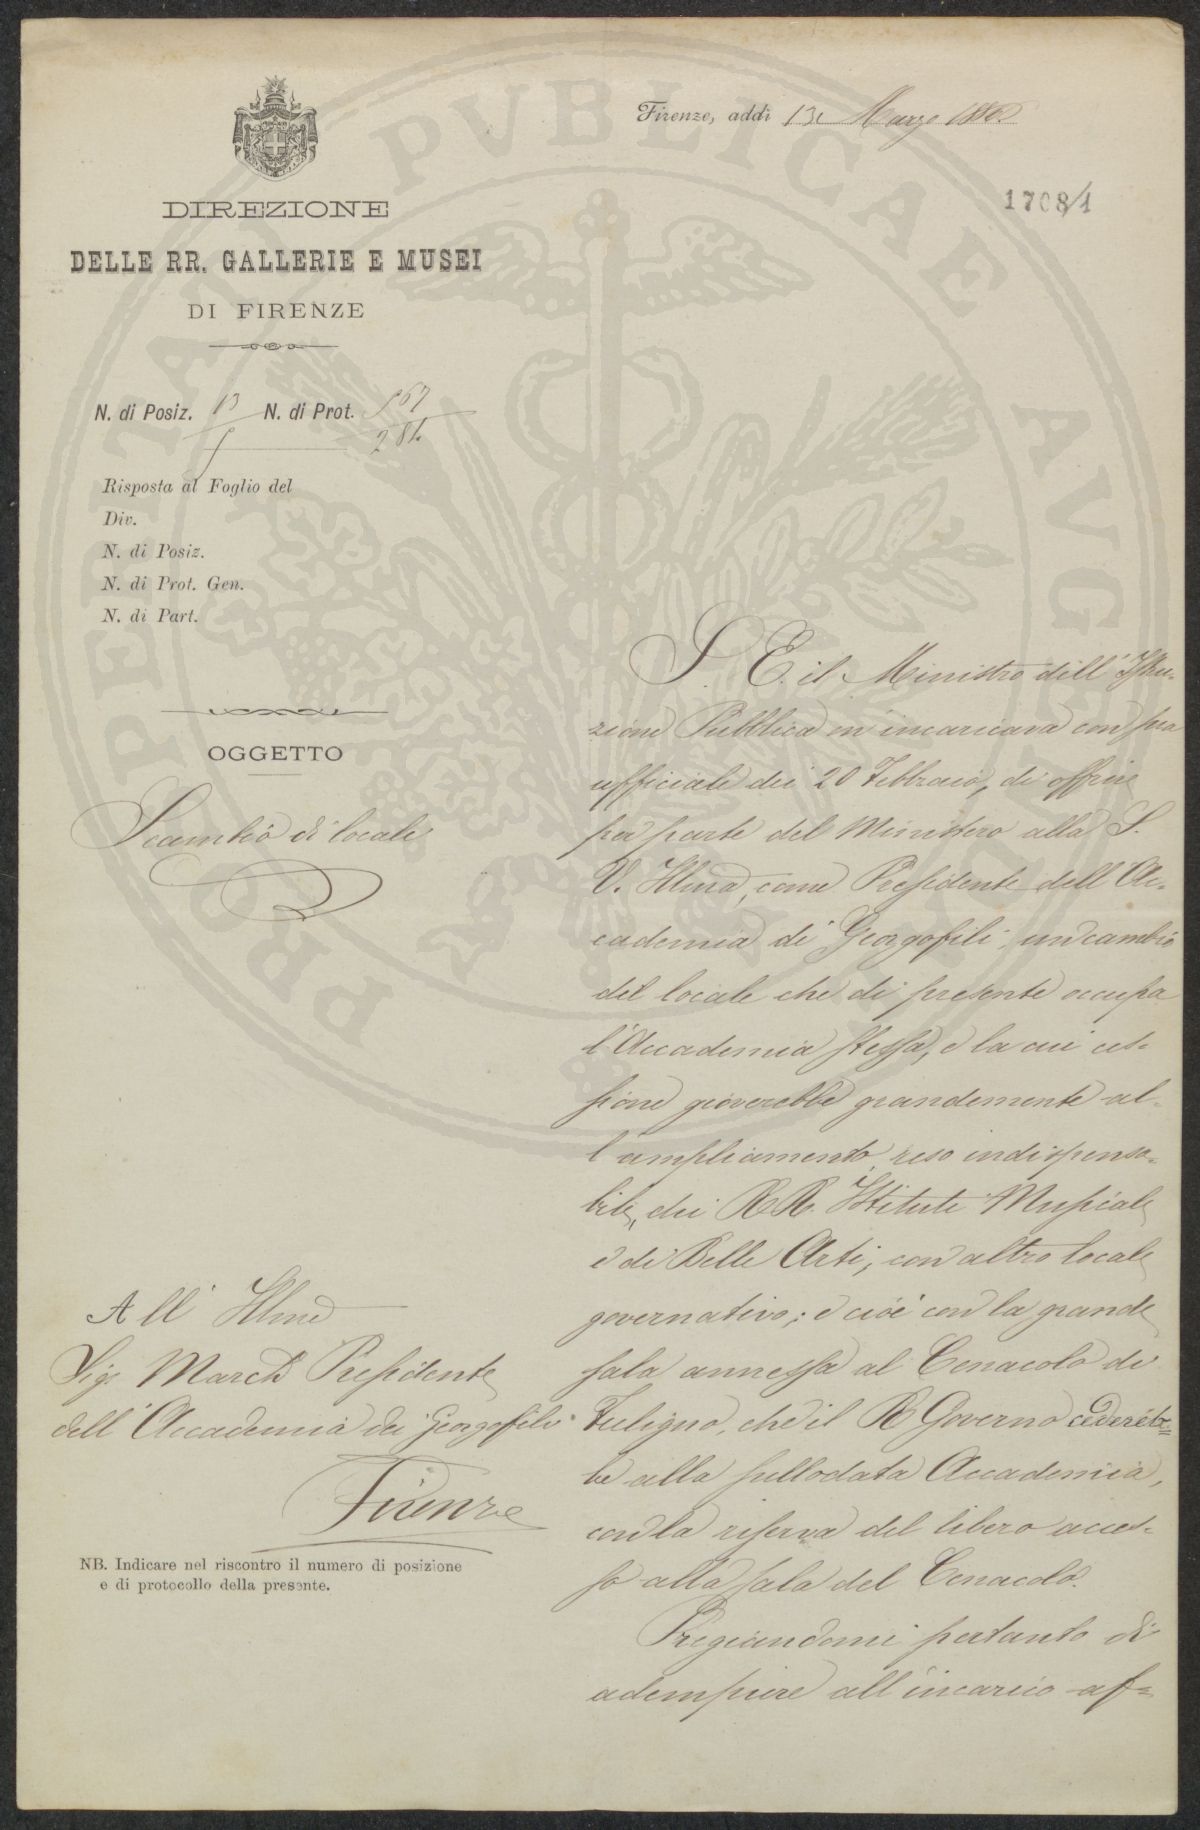 Firenze, addì 13 Marzo
1708/1
DIREZIONE
DELLE RR. GALLERIE E MUSEI
DI FIRENZE
N. di Posiz. 13 N. di Prot. 167
284
Risposta al Foglio del
Div.
N. di Posiz.
N. di Prot. Gen.
N. di Part.
OGGETTO
Scambio di locale
All' Illmo
Sig. March. Presidente
dell' Accademia dei Georgofili
Firenze
NB. Indicare nel riscontro il numero di posizione
e di protocollo della presente.
S. E. il Ministro dell' Istru-
zione Pubblica m'incaricava con sua
ufficiale dei 20 Febbraio, di offrire
per parte del Ministero alla S.
V. Illma, come Presidente dell' Ac-
cademia de' Georgofili, un cambio
del locale che di presente occupa
l'Accademia stessa, e la cui ces-
sione gioverebbe grandemente al-
l'ampliamento, reso indispensa-
bile, dei RR. Istituti Musicale
e di Belle Arti, con altro locale
governativo; e cioè con la grande
sala annessa al Cenacolo di
Fuligno, che il R Governo cedereb=
be alla sullodata Accademia,
con la riserva del libero acces-
so alla sala del Cenacolo.
Pregiandomi pertanto di
adempiere all'incarico af=
PROSPERITATI PVBLICAE AVGENDAE